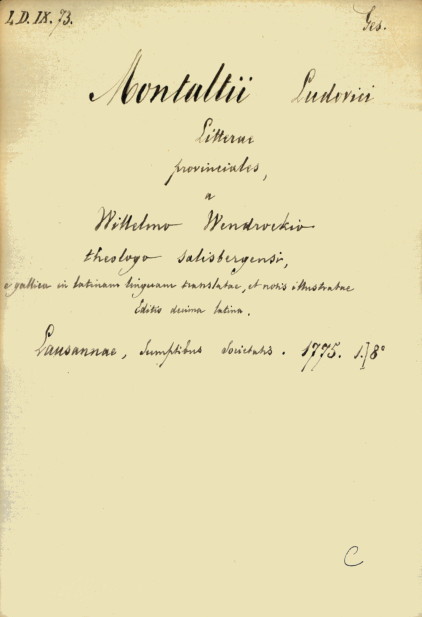 I. D. IX. 73. Ges.
Montaltii Ludovici
Litterae
provinciales,
a
Willelmo Wendrockio
theologo salisbergensi,
e gallica in latinam linguam translatae, et notis illustratae
Editio decima latina.
Lausannae, Sumptibus Societatis. 1775. 1.] 8°
C